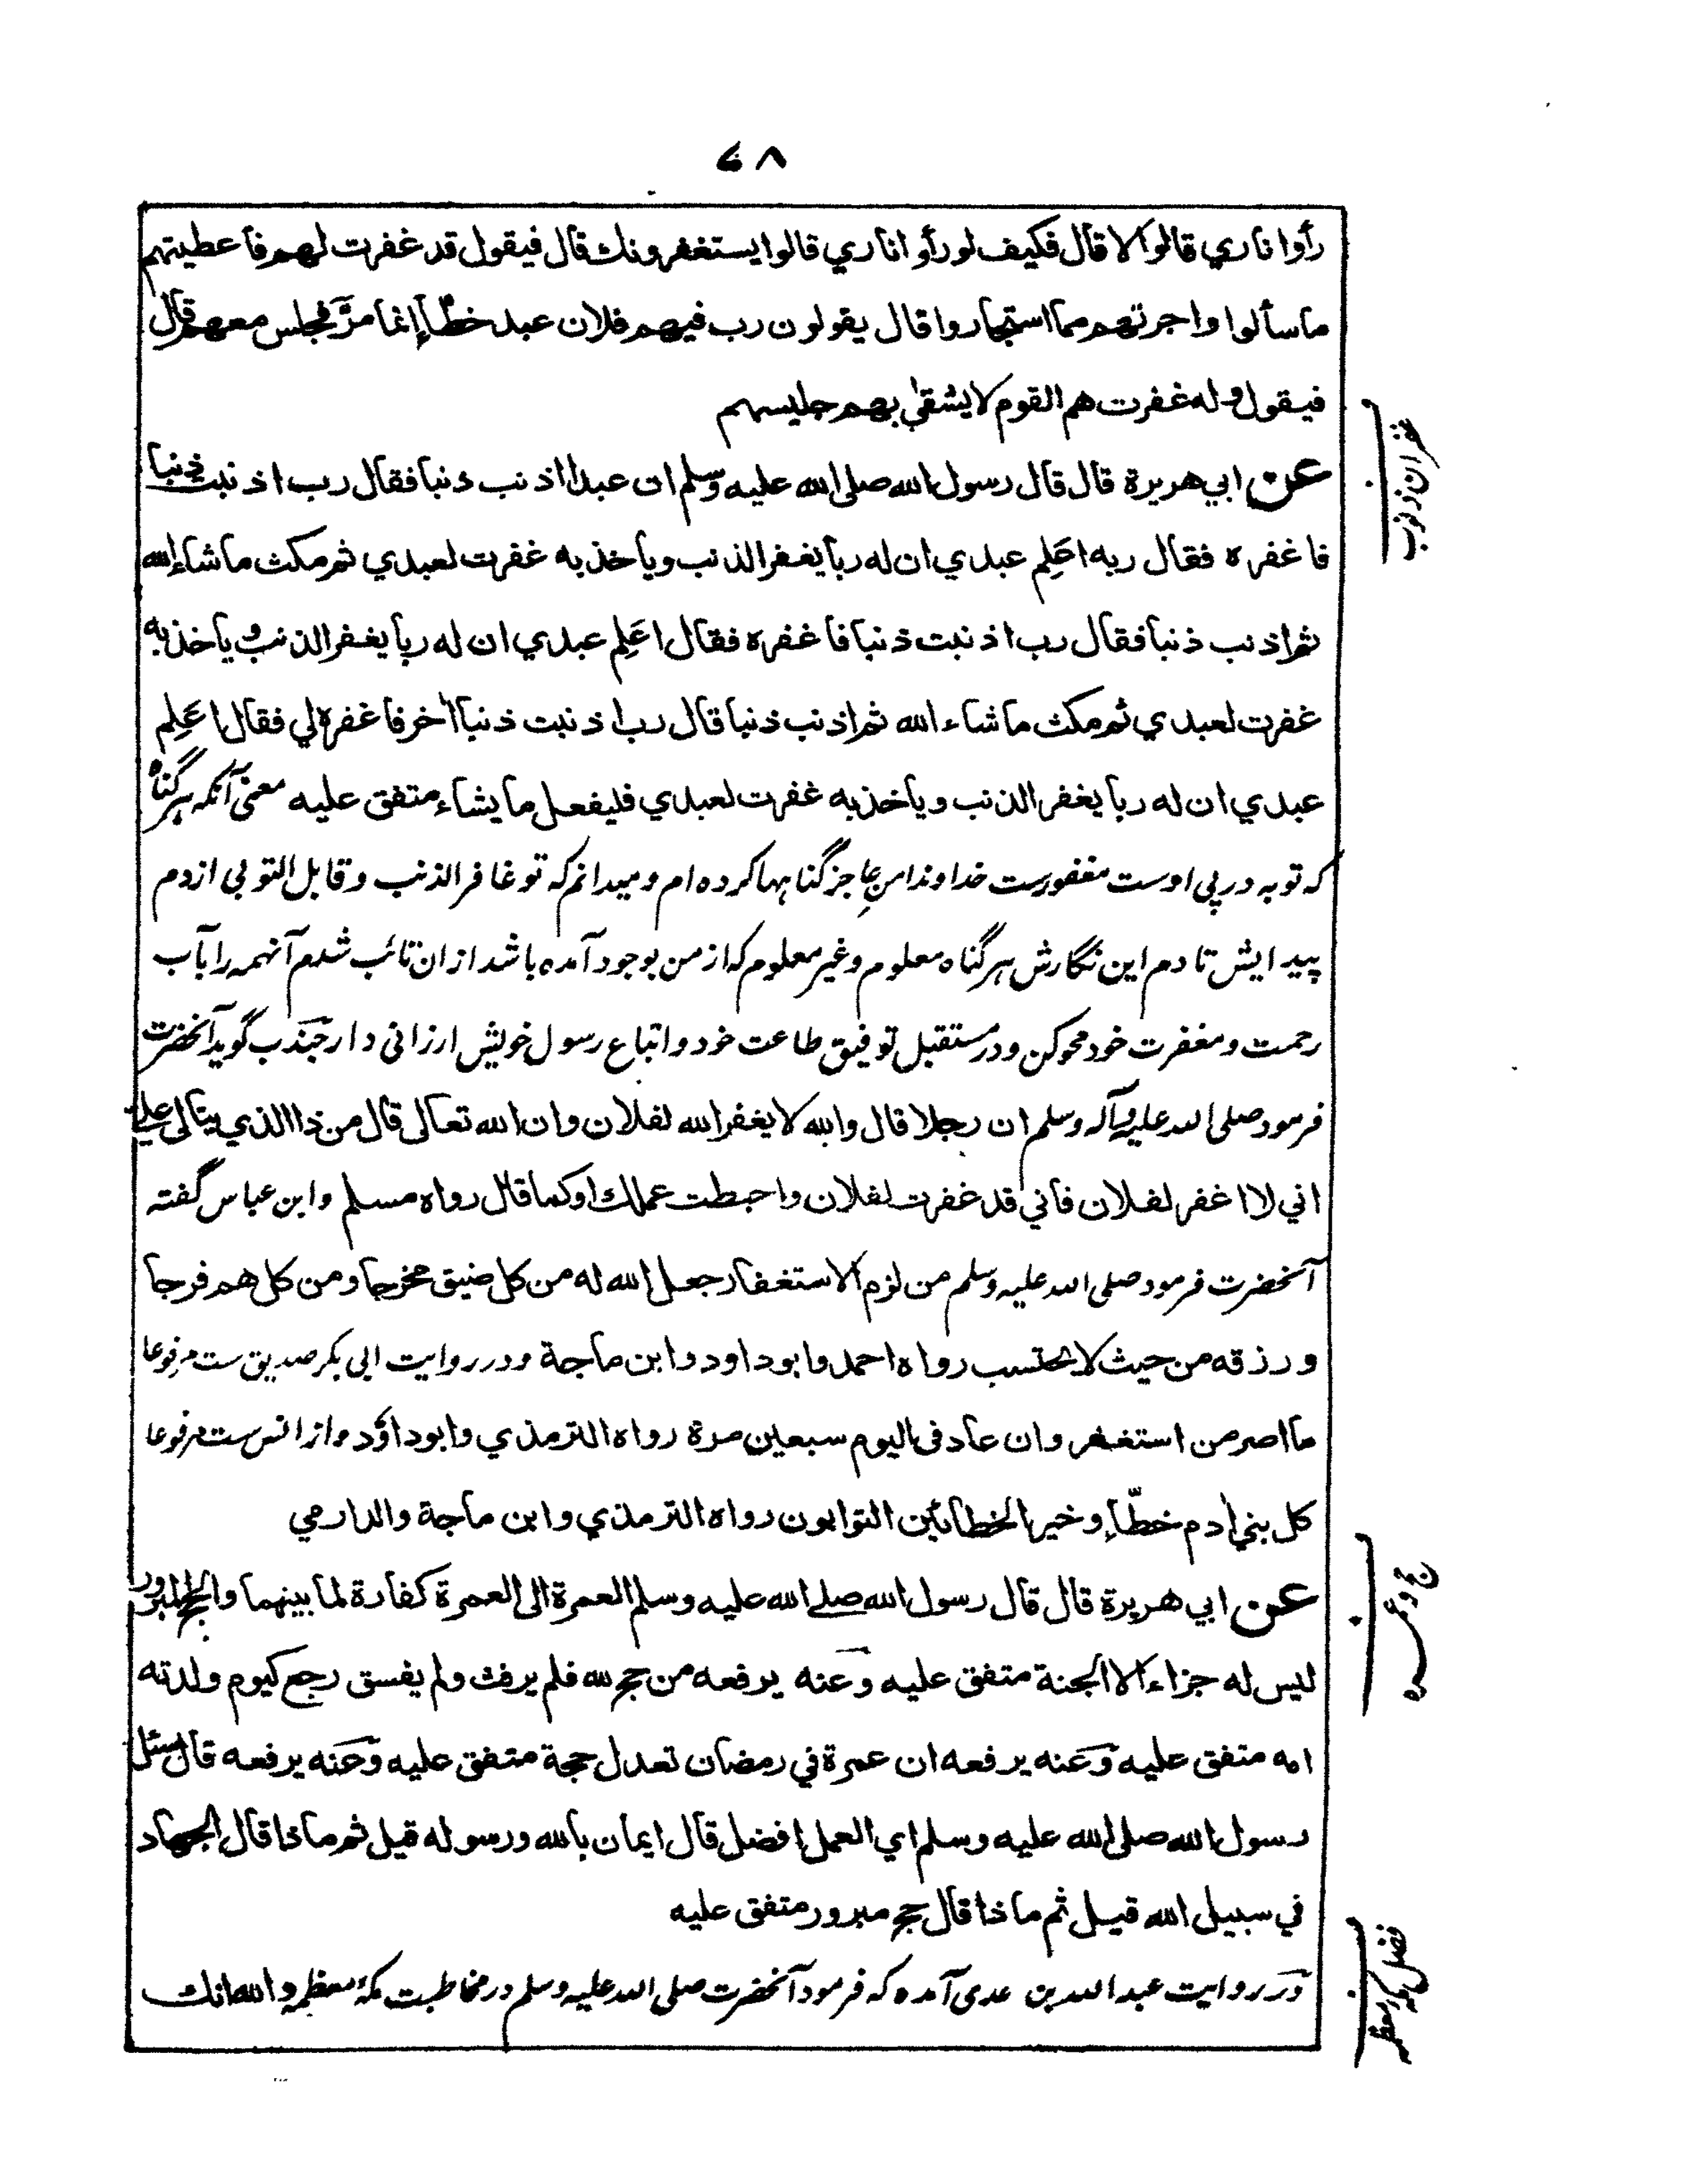 ۶۸
رأوا ناري قالوا لا قال فكيف لو رأوا ناري قالوا يستغفرونك قال فيقول قد غفرت لهم فاعطيتهم
ما سألوا واجرتهم مما استجاروا قال يقولون رب فيهم فلان عبد خطّاء إنما مرَّ فجلس معهم قال
فيقول وله غفرت هم القوم لا يشقى بهم جليسهم
عن ابي هريرة قال قال رسول الله صلى الله عليه وسلم ان عبدا اذنب ذنبا فقال رب اذنبت ذنبا
فاغفره فقال ربه اعَلِم عبدي ان له ربا يغفر الذنب وياخذ به غفرت لعبدي ثم مكث ما شاء الله
ثم اذنب ذنبا فقال رب اذنبت ذنبا فاغفره فقال اعَلِم عبدي ان له ربا يغفر الذنب وياخذ به
غفرت لعبدي ثم مكث ما شاء الله ثم اذنب ذنبا قال رب اذنبت ذنبا آخر فاغفره لي فقال اعَلِم
عبدي ان له ربا يغفر الذنب وياخذ به غفرت لعبدي فليفعل ما يشاء متفق عليه معنى آنكه هر گناه
که توبه در پی اوست مغفورست خداوندا من عاجز گناهها کرده ام و میدانم که تو غافر الذنب و قابل التوبی از دم
پیدایش تا دم این نگارش هر گناه معلوم و غیر معلوم که از من بوجود آمده باشد از ان تائب شدم آنهمه را بآب
رحمت و مغفرت خود محو کن و در مستقبل توفیق طاعت خود و اتباع رسول خویش ارزانی دار جندب گوید آنحضرت
فرمود صلی الله علیه وآله وسلم ان رجلا قال والله لا يغفر الله لفلان وان الله تعالى قال من ذا الذي يتالى علي
اني لا اغفر لفلان فاني قد غفرت لفلان واحبطت عملك او كما قال رواه مسلم وابن عباس گفته
آنحضرت فرمود صلی الله علیه وسلم من لزم الاستغفار جعل الله له من كل ضيق مخرجا ومن كل هم فرجا
ورزقه من حيث لا يحتسب رواه احمد وابوداود وابن ماجة ودر روایت ابی بکر صدیق ست مرفوعا
ما اصر من استغفر وان عاد فى اليوم سبعين مرة رواه الترمذي وابو داؤد واز انس ست مرفوعا
كل بني ادم خطّاء وخير الخطائين التوابون رواه الترمذي وابن ماجة والدارمي
عن ابي هريرة قال قال رسول الله صلى الله عليه وسلم العمرة الى العمرة كفارة لما بينهما والحج المبرور
ليس له جزاء الا الجنة متفق عليه وعنه يرفعه من حج لله فلم يرفث ولم يفسق رجع كيوم ولدته
امه متفق عليه وعنه يرفعه ان عمرة في رمضان تعدل حجة متفق عليه وعنه يرفعه قال سئل
رسول الله صلى الله عليه وسلم اي العمل افضل قال ايمان بالله ورسوله قيل ثم ماذا قال الجهاد
في سبيل الله قيل ثم ماذا قال حج مبرور متفق عليه
ودر روایت عبد الله بن عدی آمده که فرمود آنحضرت صلی الله علیه وسلم در مخاطبت مکۀ معظمه والله انك
غفران ذنوب
حج و عمره
فضل مکه معظمه